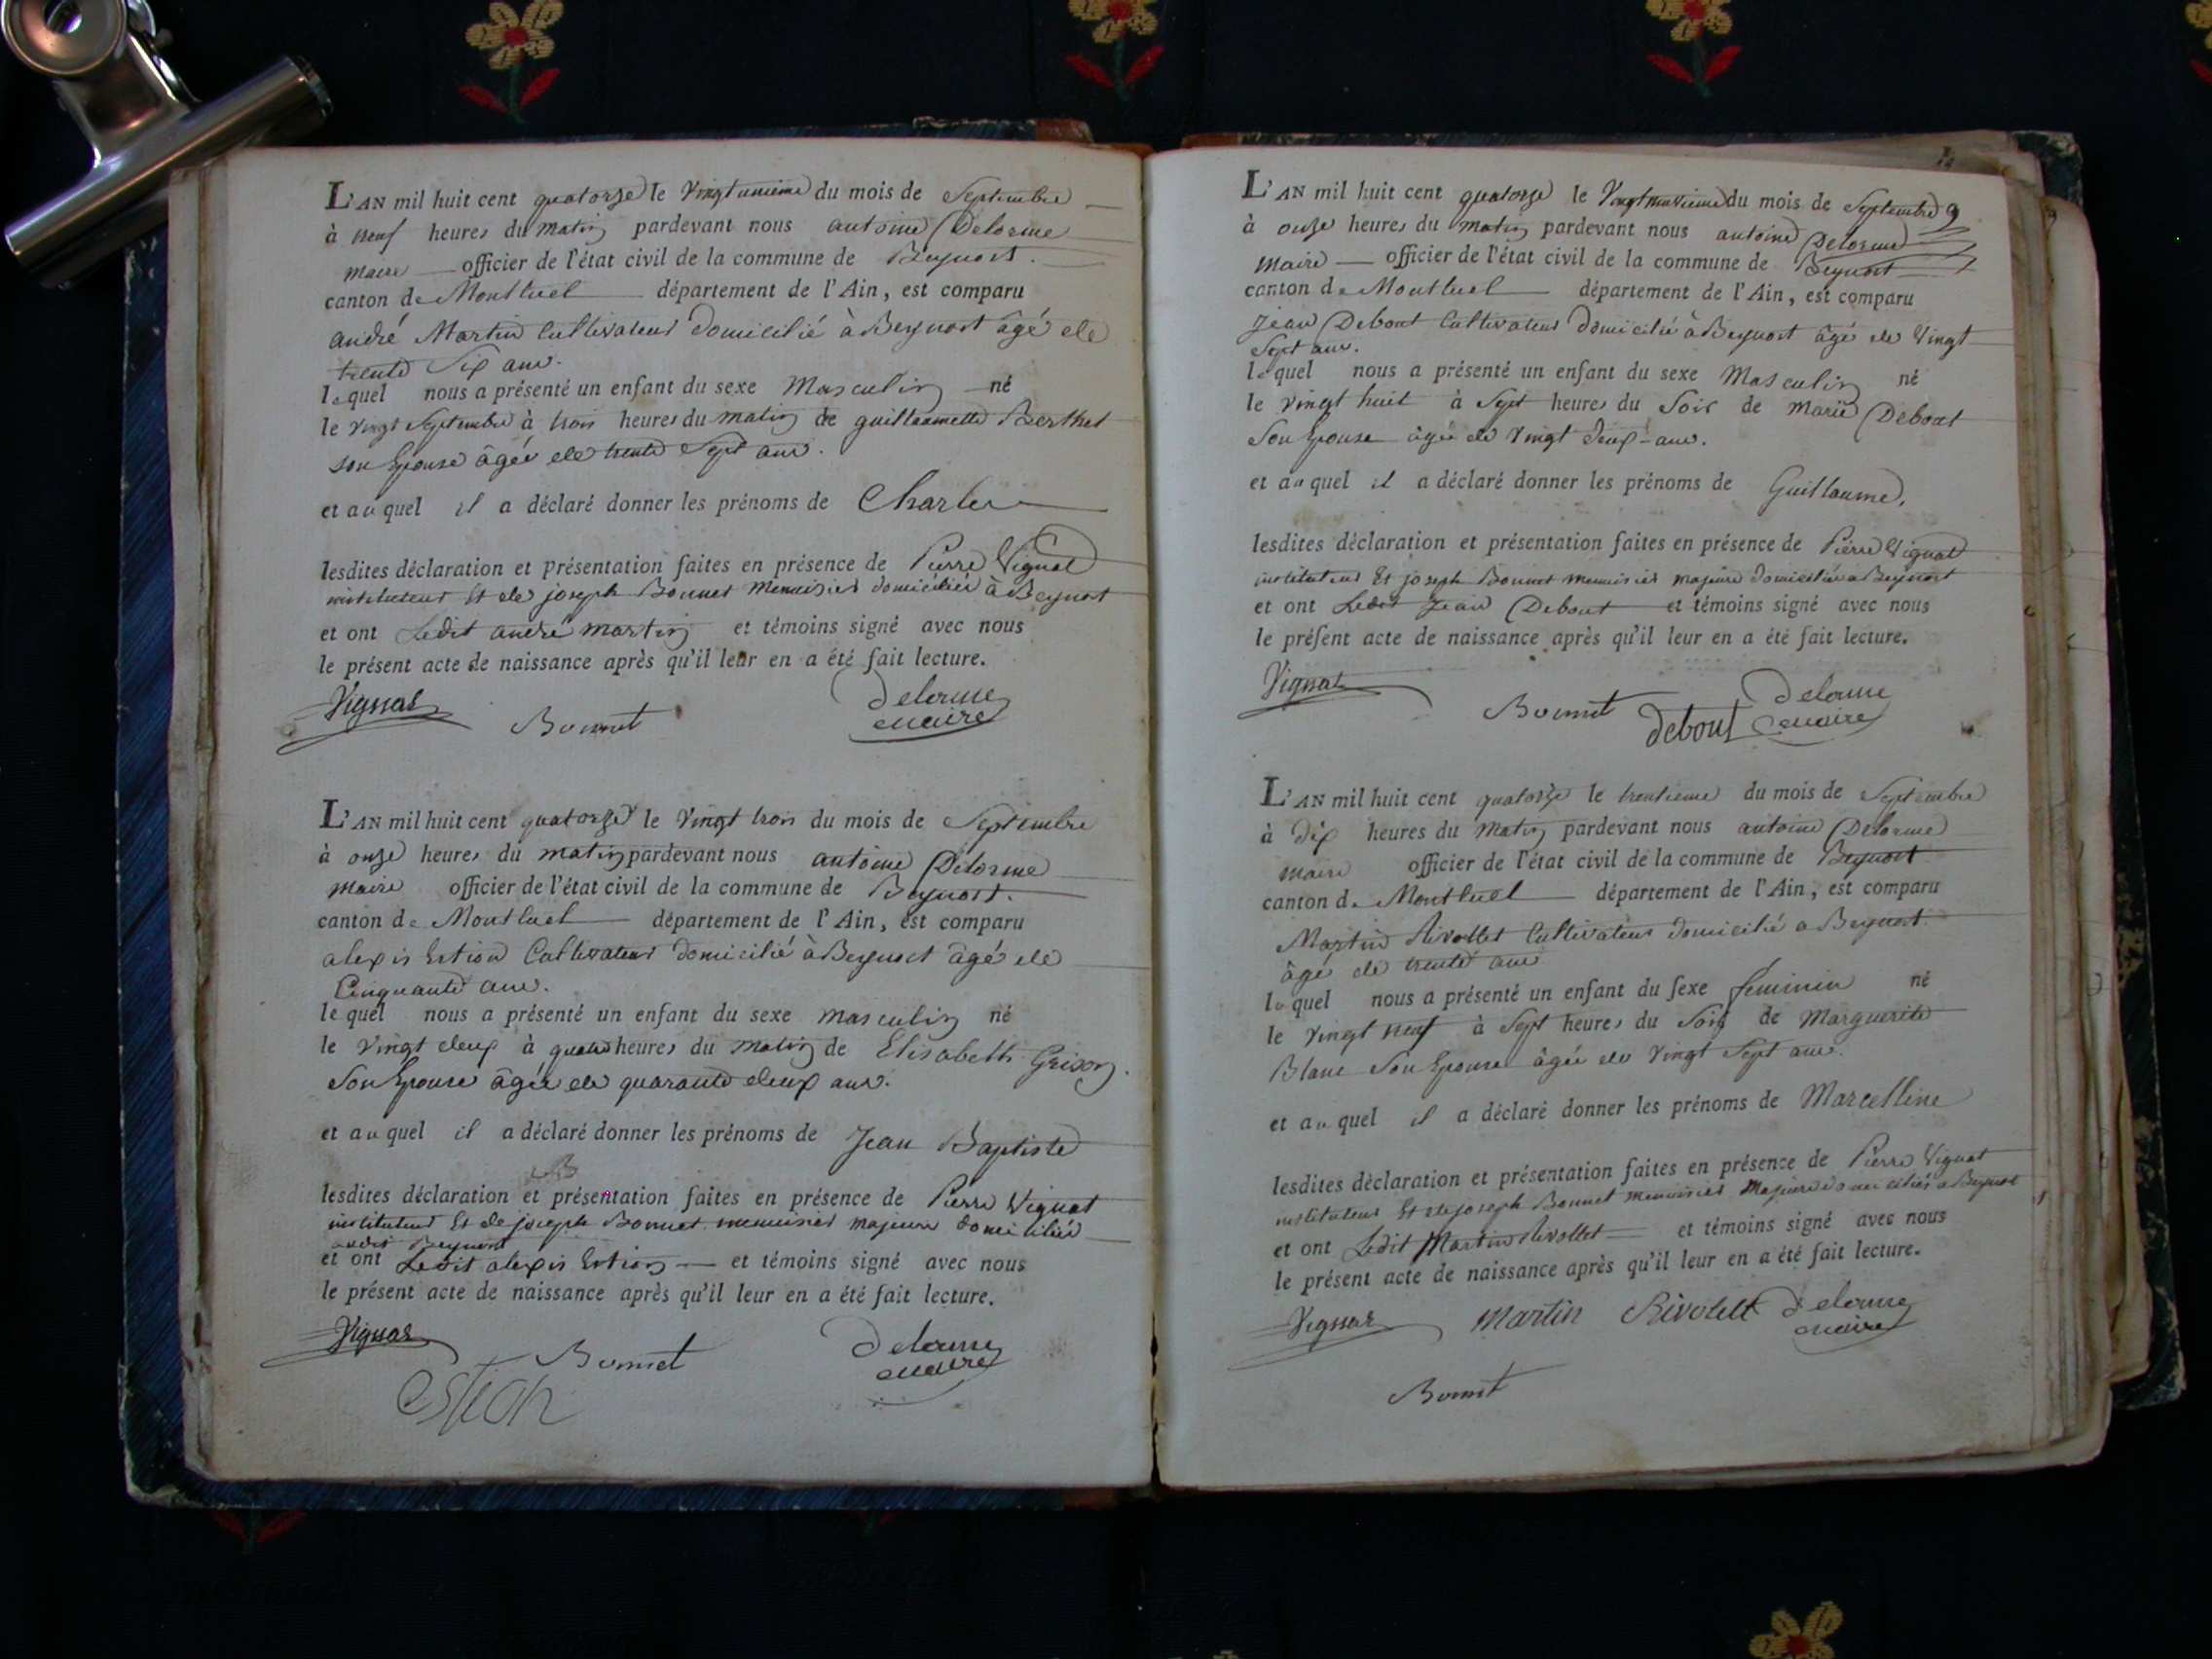 L'AN mil huit cent quatorze le vingt unieme du mois de Septembre
à neuf heures du matin pardevant nous antoine Delorme
maire officier de l'état civil de la commune de Beynost.
canton de Montluel département de l'Ain, est comparu
andré Martin Cultivateur domicilié à Beynost âgé de
trente Six ans.
lequel nous a présenté un enfant du sexe Masculin né
le vingt Septembre à trois heures du matin de guillaumette Berthet
son Epouse âgée de trente Sept ans.
et auquel il a déclaré donner les prénoms de Charles
lesdites déclaration et présentation faites en présence de Pierre Vignat
instituteur Et de joseph Bonnet Menuisier domiciliés à Beynost
et ont Ledit andré martin et témoins signé avec nous
le présent acte de naissance après qu'il leur en a été fait lecture.
Vignat Bonnet Delorme
maire
L'AN mil huit cent quatorze le vingt trois du mois de Septembre
à onze heures du matin pardevant nous antoine Delorme
maire officier de l'état civil de la commune de Beynost.
canton de Montluel département de l'Ain, est comparu
alexis Estion Cultivateur domicilié à Beynost âgé de
Cinquante ans.
lequel nous a présenté un enfant du sexe masculin né
le vingt deux à quatre heures du matin de Elisabeth Grison.
Son Epouse âgée de quarante deux ans.
et auquel il a déclaré donner les prénoms de Jean Baptiste
lesdites déclaration et présentation faites en présence de Pierre Vignat
instituteur Et de joseph Bonnet menuisier majeurs domiciliés
audit Beynost
et ont Ledit alexis Estion et témoins signé avec nous
le présent acte de naissance après qu'il leur en a été fait lecture.
Vignat Bonnet Delorme
maire
estion
L'AN mil huit cent quatorze le vingt neuvieme du mois de Septembre
à onze heures du matin pardevant nous antoine Delorme
maire officier de l'état civil de la commune de Beynost
canton de Montluel département de l'Ain, est comparu
Jean Debout Cultivateur domicilié à Beynost âgé de vingt
Sept ans.
lequel nous a présenté un enfant du sexe Masculin né
le vingt huit à Sept heures du Soir de Marie Debout
Son Epouse âgée de vingt deux ans.
et auquel il a déclaré donner les prénoms de Guillaume.
lesdites déclaration et présentation faites en présence de Pierre Vignat
instituteur Et joseph Bonnet menuisier majeurs domiciliés a Beynost
et ont Ledit Jean Debout et témoins signé avec nous
le présent acte de naissance après qu'il leur en a été fait lecture.
Vignat Bonnet debout Delorme
maire
L'AN mil huit cent quatorze le trentieme du mois de Septembre
à dix heures du matin pardevant nous antoine Delorme
maire officier de l'état civil de la commune de Beynost
canton de Montluel département de l'Ain, est comparu
Martin Rivollet Cultivateur domicilié a Beynost.
âgé de trente ans
lequel nous a présenté un enfant du sexe feminin né
le vingt neuf à Sept heures du Soir de Marguerite
Blanc Son Epouse âgée de vingt Sept ans.
et auquel il a déclaré donner les prénoms de Marcelline
lesdites déclaration et présentation faites en présence de Pierre Vignat
instituteur Et de joseph Bonnet menuisier Majeurs domiciliés a Beynost
et ont Ledit Martin Rivollet et témoins signé avec nous
le présent acte de naissance après qu'il leur en a été fait lecture.
Vignat Martin Rivolet Delorme
maire
Bonnet